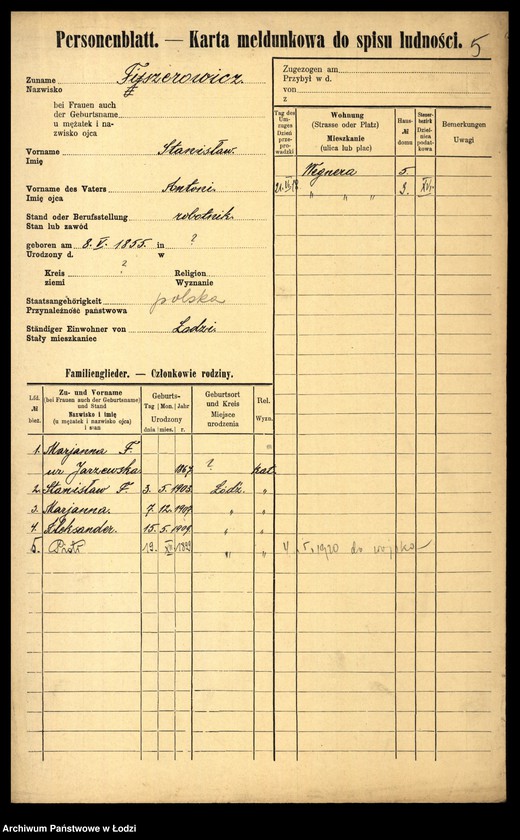 Personenblatt. — Karta meldunkowa do spisu ludności. 5
Zuname Fiszerowicz.
Nazwisko
bei Frauen auch
der Geburtsname
u mężatek i na-
zwisko ojca
Vorname Stanisław.
Imię
Vorname des Vaters Antoni.
Imię ojca
Stand oder Berufsstellung robotnik.
Stan lub zawód
geboren am 8. V. 1855. in ?
Urodzony d. w
Kreis ? Religion
ziemi Wyznanie
Staatsangehörigkeit polska
Przynależność państwowa
Ständiger Einwohner von Łodzi.
Stały mieszkaniec
Zugezogen am
Przybył w d.
von
z
Tag des Um-zuges Dzień prze-prowadzki
Wohnung
(Strasse oder Platz)
Mieszkanie
(ulica lub plac)
Haus-
№
domu
Steuer-bezirk Dzielnica podatkowa
Bemerkungen
Uwagi
Wegnera 5.
" " " 3. XVI.
Familienglieder. — Członkowie rodziny.
Lfd.
№
bież.
Zu- und Vorname
(bei Frauen auch der Geburtsname)
und Stand
Nazwisko i imię
(u mężatek i nazwisko ojca)
i stan
Geburts-
Tag Mon. Jahr
Urodzony
dnia mies. r.
Geburtsort
und Kreis
Miejsce
urodzenia
Rel.
Wyzn.
1. Marjanna F.
ur Jarzewska 1867 ? kat.
2. Stanisław F. 3. 5. 1903. Łódź. "
3. Marjanna. 7. 12. 1907 " "
4. Aleksander. 15. 5. 1909. " "
5. Piotr 19. 1899 " " 4. 5. 1920 do wojska
Archiwum Państwowe w Łodzi